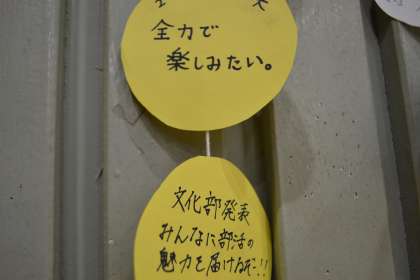 全力で
楽しみたい。
文化部発表
みんなに部活の
魅力を届けるぞ!!